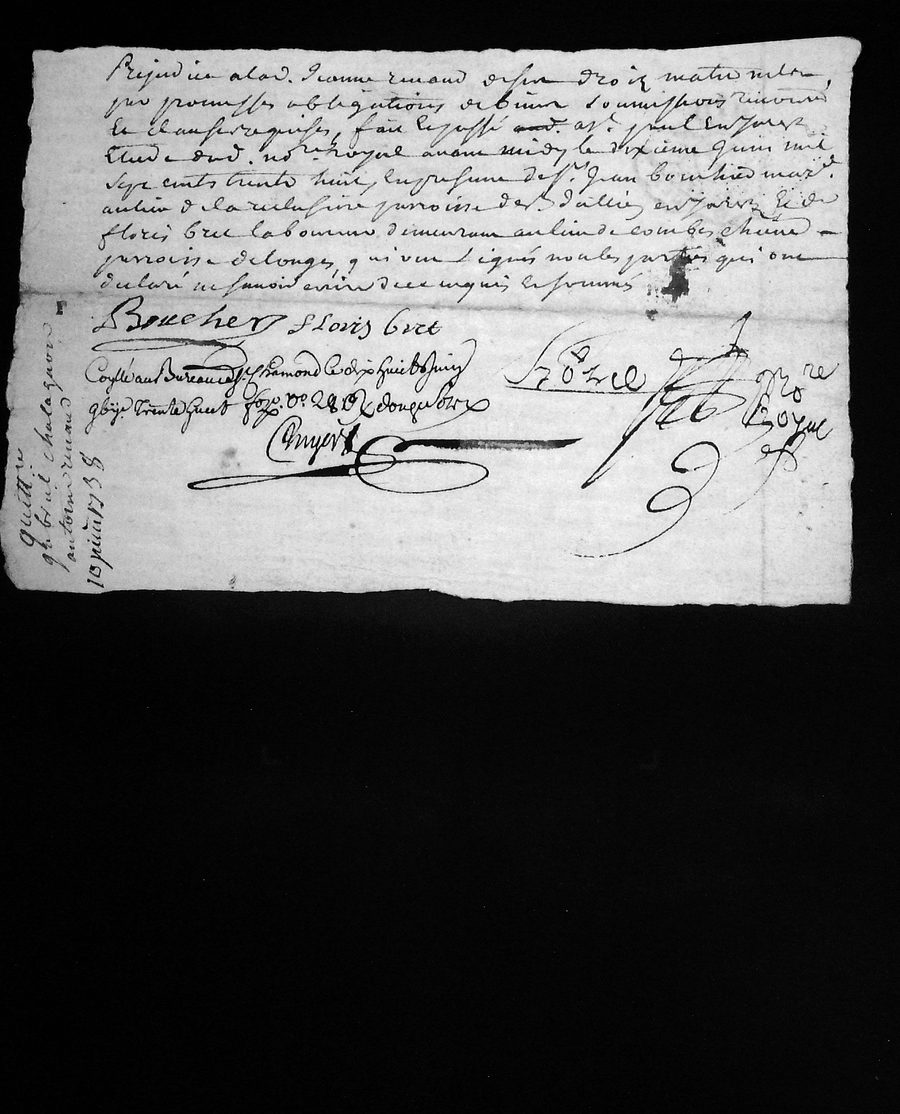 Prejudice alad. Jeanne renaud de ses droix maternels,
par promesses obligations de biens soumissions renoncõns
Et clauses requises, fait et passé aud. st. paul En Jarest
Etude dud. nore. Royal avant midy le dixieme Juin mil
Sept cents trente huit, En presence de sr. Jean boucher mard.
au lieu de la parroisse de st. En Jarest Et de
floris bret laboureur demeurant au lieu de combes
parroisse de longes, qui ont signés non les parties qui ont
declaré ne scavoir ecrire de ce enquis et sommés
Boucher floris bret
Coñllé au Bureau de st. Chamond le dix huit Juin
gbije. trente huit
nore
Royal
quittce
gabriel chalagnon
antoine renaud
10 juin 1738